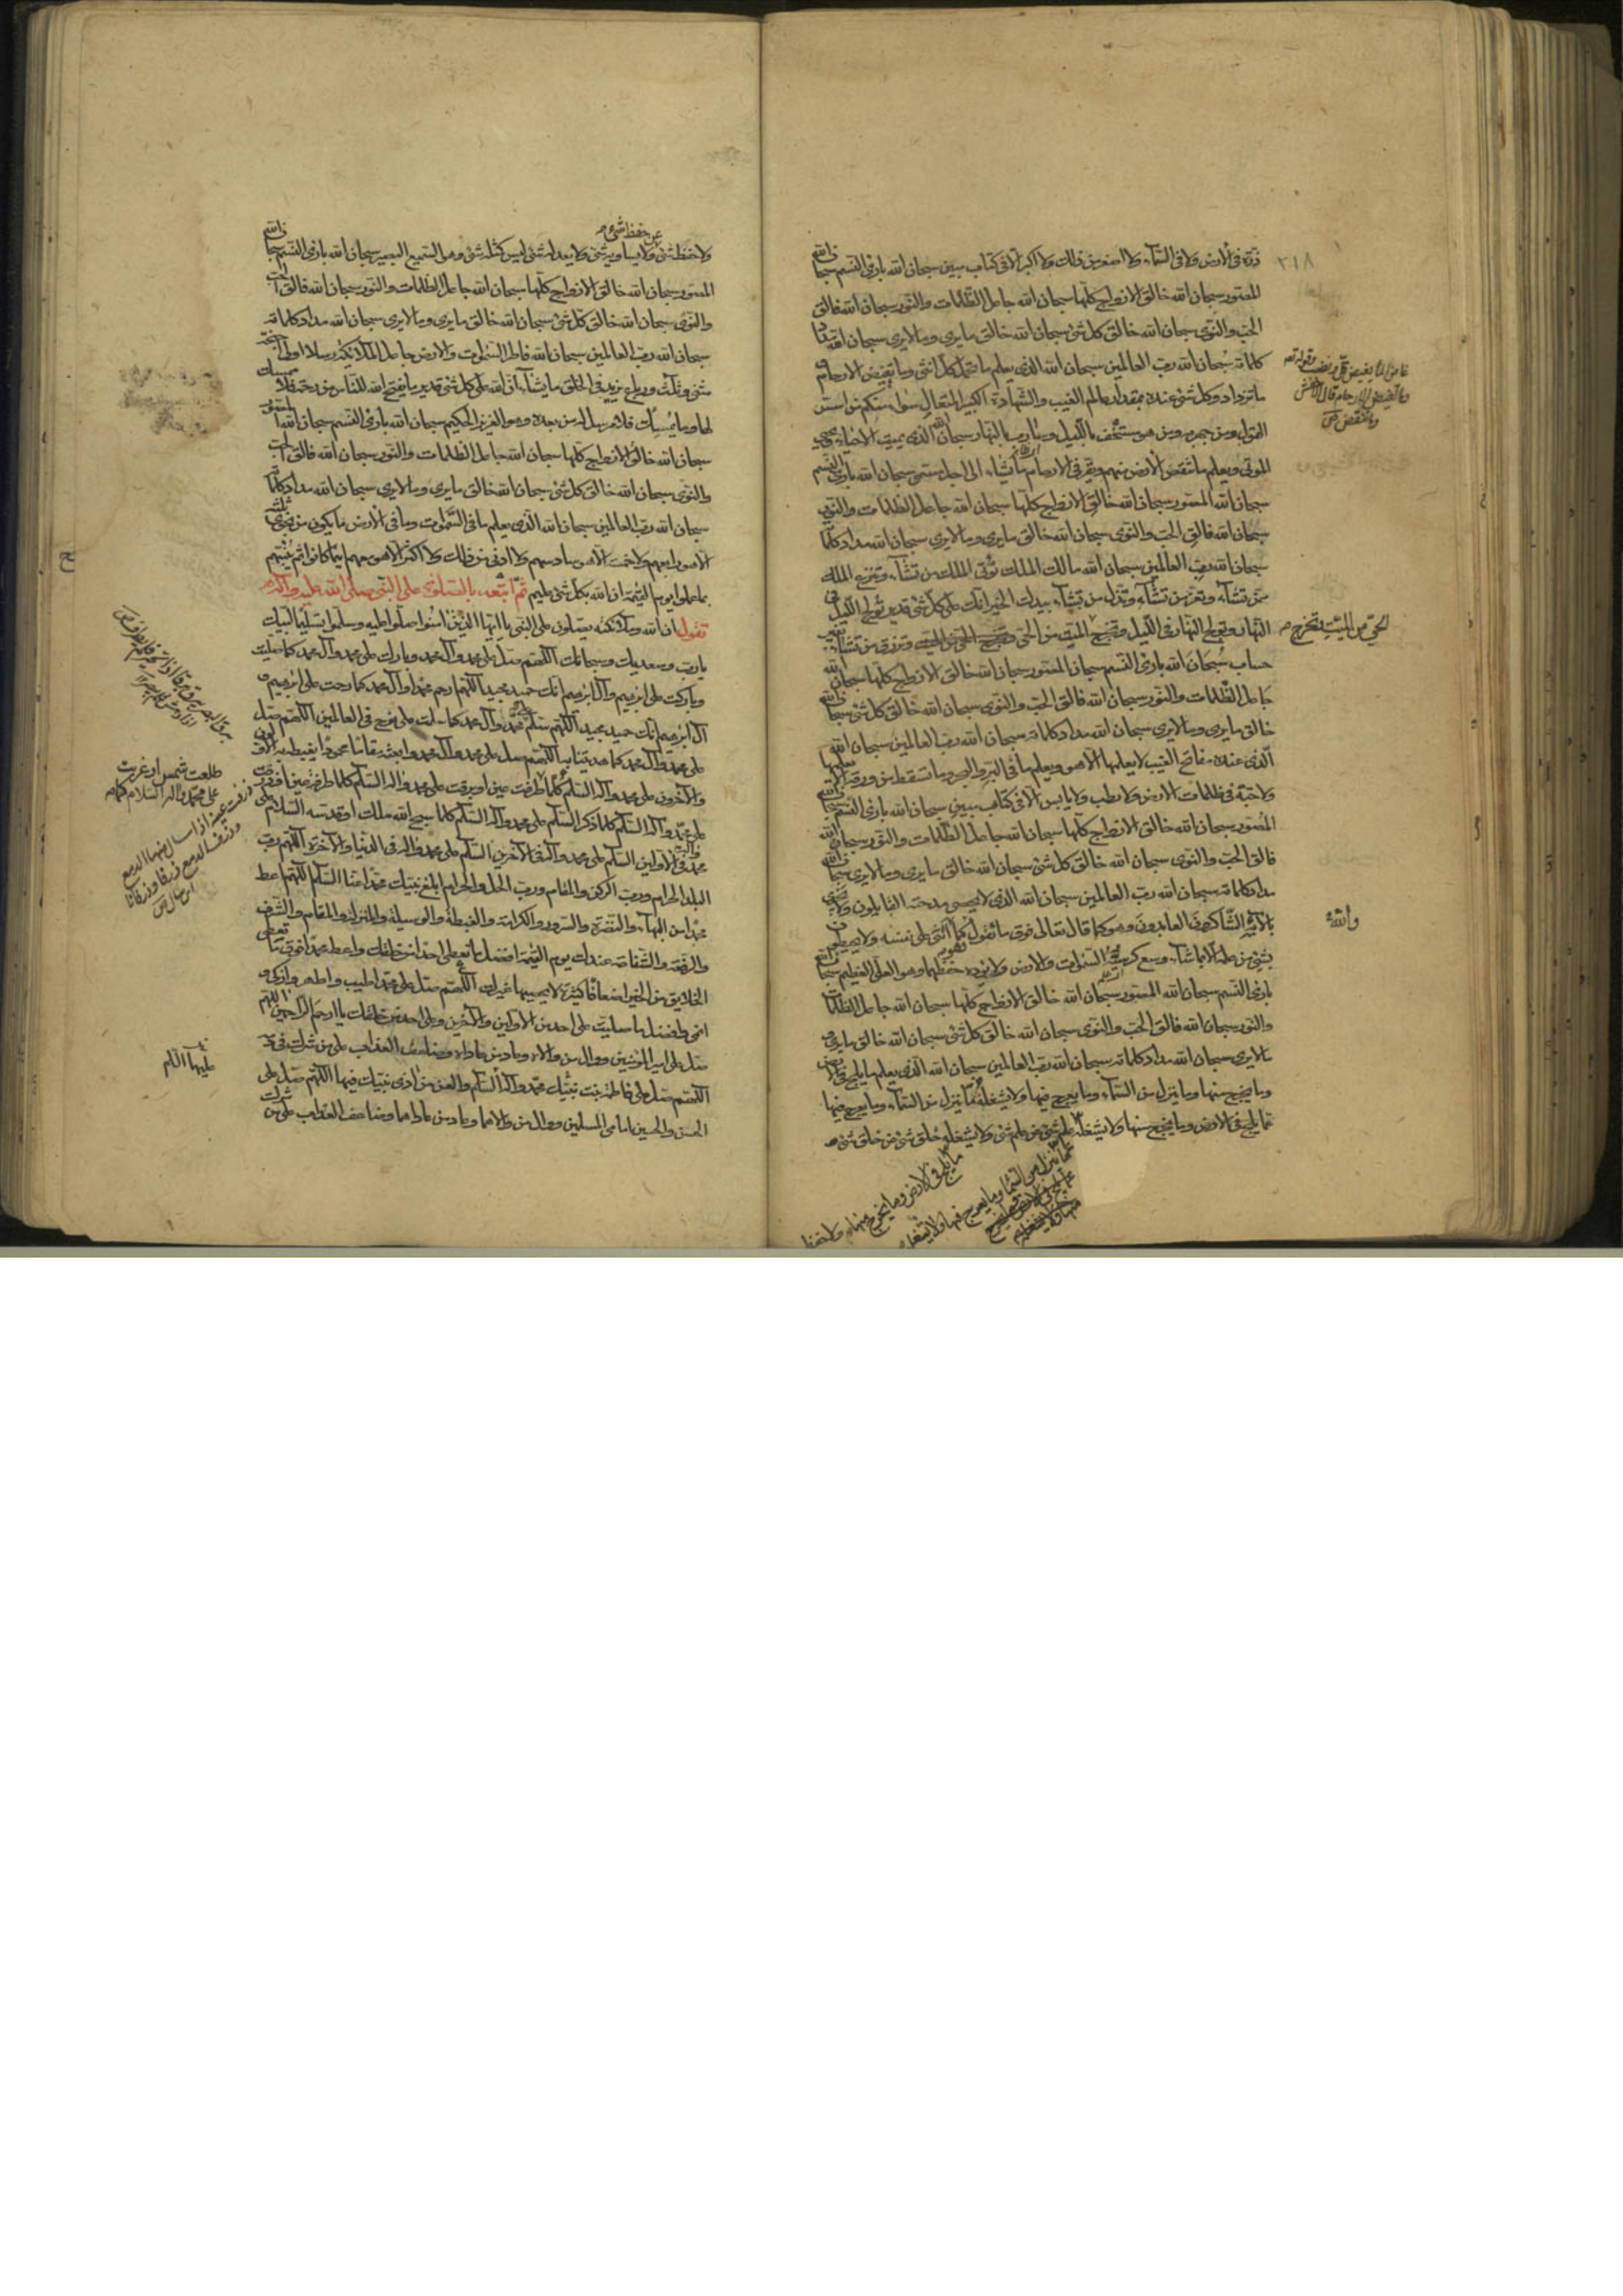 ٢١٨
ذرة في الأرض ولا في السماء ولا أصغر من ذلك ولا أكبر إلا في كتاب مبين سبحان الله بارئ النسم سبحان الله
المصور سبحان الله خالق الأزواج كلها سبحان الله جاعل الظلمات والنور سبحان الله فالق
الحب والنوى سبحان الله خالق كل شئ سبحان الله خالق ما يرى وما لا يرى سبحان الله مداد
كلماته سبحان الله رب العالمين سبحان الله الذي يعلم ما تحمل كل أنثى وما تغيض الأرحام و
ما تزداد وكل شئ عنده بمقدار عالم الغيب والشهادة الكبير المتعال سواء منكم من أسر
القول ومن جهر به ومن هو مستخف بالليل وسارب بالنهار سبحان الله الذي يميت الأحياء ويحيي
الموتى ويعلم ما تنقص الأرض منهم ويقر في الأرحام ما يشاء إلى أجل مسمى سبحان الله بارئ النسم
سبحان الله المصور سبحان الله خالق الأزواج كلها سبحان الله جاعل الظلمات والنور
سبحان الله فالق الحب والنوى سبحان الله خالق ما يرى وما لا يرى سبحان الله مداد كلماته
سبحان الله رب العالمين سبحان الله مالك الملك تؤتي الملك من تشاء وتنزع الملك
ممن تشاء وتعز من تشاء وتذل من تشاء بيدك الخير إنك على كل شئ قدير تولج الليل في
النهار وتولج النهار في الليل وتخرج الميت من الحي وترزق من تشاء بغير
حساب سبحان الله بارئ النسم سبحان المصور سبحان الله خالق الأزواج كلها سبحان الله
جاعل الظلمات والنور سبحان الله فالق الحب والنوى سبحان الله خالق كل شئ سبحان الله
خالق ما يرى وما لا يرى سبحان الله مداد كلماته سبحان الله رب العالمين سبحان الله
الذي عنده مفاتح الغيب لا يعلمها إلا هو ويعلم ما في البر والبحر وما تسقط من ورقة إلا يعلمها
ولا حبة في ظلمات الأرض ولا رطب ولا يابس إلا في كتاب مبين سبحان الله بارئ النسم سبحان الله
المصور سبحان الله خالق الأزواج كلها سبحان الله جاعل الظلمات والنور سبحان الله
فالق الحب والنوى سبحان الله خالق كل شئ سبحان الله خالق ما يرى وما لا يرى سبحان الله
مداد كلماته سبحان الله رب العالمين سبحان الله الذي لا يحصي مدحته القائلون ولا يجزي
بآلائه الشاكرون العابدون وهو كما قال تعالى فوق ما نقول كما أثنى على نفسه ولا يحيطون
بشئ من علمه إلا بما شاء وسع كرسيه السموات والأرض ولا يؤده حفظهما وهو العلي العظيم سبحان الله
بارئ النسم سبحان الله المصور سبحان الله خالق الأزواج كلها سبحان الله جاعل الظلمات
والنور سبحان الله فالق الحب والنوى سبحان الله خالق كل شئ سبحان الله خالق ما يرى و
ما لا يرى سبحان الله مداد كلماته سبحان الله رب العالمين سبحان الله الذي يعلم ما يلج في الأرض
وما يخرج منها وما ينزل من السماء وما يعرج فيها ولا يشغله ما ينزل من السماء وما يعرج فيها
عما يلج في الأرض وما يخرج منها ولا يشغله علم شئ عن علم شئ ولا يشغله خلق شئ عن خلق شئ
الحي من الميت وتخرج
والله
ما يلج في الأرض وما يخرج منها
عما ينزل من السماء وما يعرج فيها ولا يشغله
عن حفظ شئ
ولا حفظ شئ ولا يساويه شئ ولا يعدله شئ ليس كمثله شئ وهو السميع البصير سبحان الله بارئ النسم سبحان الله
المصور سبحان الله خالق الأزواج كلها سبحان الله جاعل الظلمات والنور سبحان الله فالق الحب
والنوى سبحان الله خالق كل شئ سبحان الله خالق ما يرى وما لا يرى سبحان الله مداد كلماته
سبحان الله رب العالمين سبحان الله فاطر السموات والأرض جاعل الملائكة رسلا أولي أجنحة
مثنى وثلث ورباع يزيد في الخلق ما يشاء إن الله على كل شئ قدير ما يفتح الله للناس من رحمة فلا ممسك
لها وما يمسك فلا مرسل له من بعده وهو العزيز الحكيم سبحان الله بارئ النسم سبحان الله المصور
سبحان الله خالق الأزواج كلها سبحان الله جاعل الظلمات والنور سبحان الله فالق الحب
والنوى سبحان الله خالق كل شئ سبحان الله خالق ما يرى وما لا يرى سبحان الله مداد كلماته
سبحان الله رب العالمين سبحان الله الذي يعلم ما في السموات وما في الأرض ما يكون من نجوى ثلثة
إلا هو رابعهم ولا خمسة إلا هو سادسهم ولا أدنى من ذلك ولا أكثر إلا هو معهم أينما كانوا ثم ينبئهم
بما عملوا يوم القيمة إن الله بكل شئ عليم ثم اتبعه بالصلوة على النبي صلى الله عليه وآله
تقول إن الله وملائكته يصلون على النبي يا أيها الذين آمنوا صلوا عليه وسلموا تسليما لبيك
يا رب وسعديك وسبحانك اللهم صل على محمد وآل محمد وبارك على محمد وآل محمد كما صليت
وباركت على إبرهيم وآل إبرهيم إنك حميد مجيد اللهم ارحم محمدا وآل محمد كما رحمت على إبرهيم و
آل إبرهيم إنك حميد مجيد اللهم سلم على محمد وآل محمد كما سلمت على نوح في العالمين اللهم صل
على محمد وآل محمد كما هديتنا به اللهم صل على محمد وآل محمد وابعثه مقاما محمودا يغبطه به الأولون
والآخرون على محمد وآله السلام كلما طرفت عين أو برقت على محمد وآله السلام كلما طرفت عين أو ذرفت
على محمد وآله السلام كلما ذكر السلام على محمد وآله السلام كلما سبح الله ملك أو قدسه السلام على
محمد وآله في الأولين السلام على محمد وآله في الآخرين السلام على محمد وآله في الدنيا والآخرة اللهم رب
البلد الحرام ورب الركن والمقام ورب الحل والحرام أبلغ نبيك محمدا عنا السلام اللهم أعط
محمدا من البهاء والنضرة والسرور والكرامة والغبطة والوسيلة والمنزلة والمقام والشرف
والرفعة والشفاعة عندك يوم القيمة أفضل ما تعطي أحدا من خلقك وأعط محمدا فوق ما تعطي
الخلايق من الخير أضعافا كثيرة لا يحصيها غيرك اللهم صل على محمد أطيب وأطهر وأزكى و
أنمى وأفضل ما صليت على أحد من الأولين والآخرين وعلى أحد من خلقك يا أرحم الراحمين اللهم
صل على أمير المؤمنين ووال من والاه وعاد من عاداه وضاعف العذاب على من شرك في دمه
اللهم صل على فاطمة بنت نبيك محمد وآله السلام والعن من آذى نبيك فيها اللهم صل على
الحسن والحسين إمامي المسلمين ووال من والاهما وعاد من عاداهما وضاعف العذاب على من شرك
طلعت شمس أو غربت
على محمد وآله السلام كلما
عليها السلام